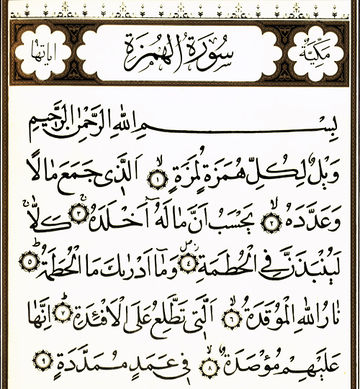 مكية سورة الهمزة اياتها
بسم الله الرحمن الرحيم
وَيْلٌ لِكُلِّ هُمَزَةٍ لُمَزَةٍ ١ اَلَّذِى جَمَعَ مَالًا
وَعَدَّدَهُ ٢ يَحْسَبُ اَنَّ مَالَهُ اَخْلَدَهُ ٣ كَلَّا
لَيُنْبَذَنَّ فِى الْحُطَمَةِ ٤ وَمَا اَدْرٰيكَ مَا الْحُطَمَةُ ٥
نَارُ اللهِ الْمُوقَدَةُ ٦ اَلَّتِى تَطَّلِعُ عَلَى الْاَفْئِدَةِ ٧ اِنَّهَا
عَلَيْهِمْ مُؤْصَدَةٌ ٨ فِى عَمَدٍ مُمَدَّدَةٍ ٩